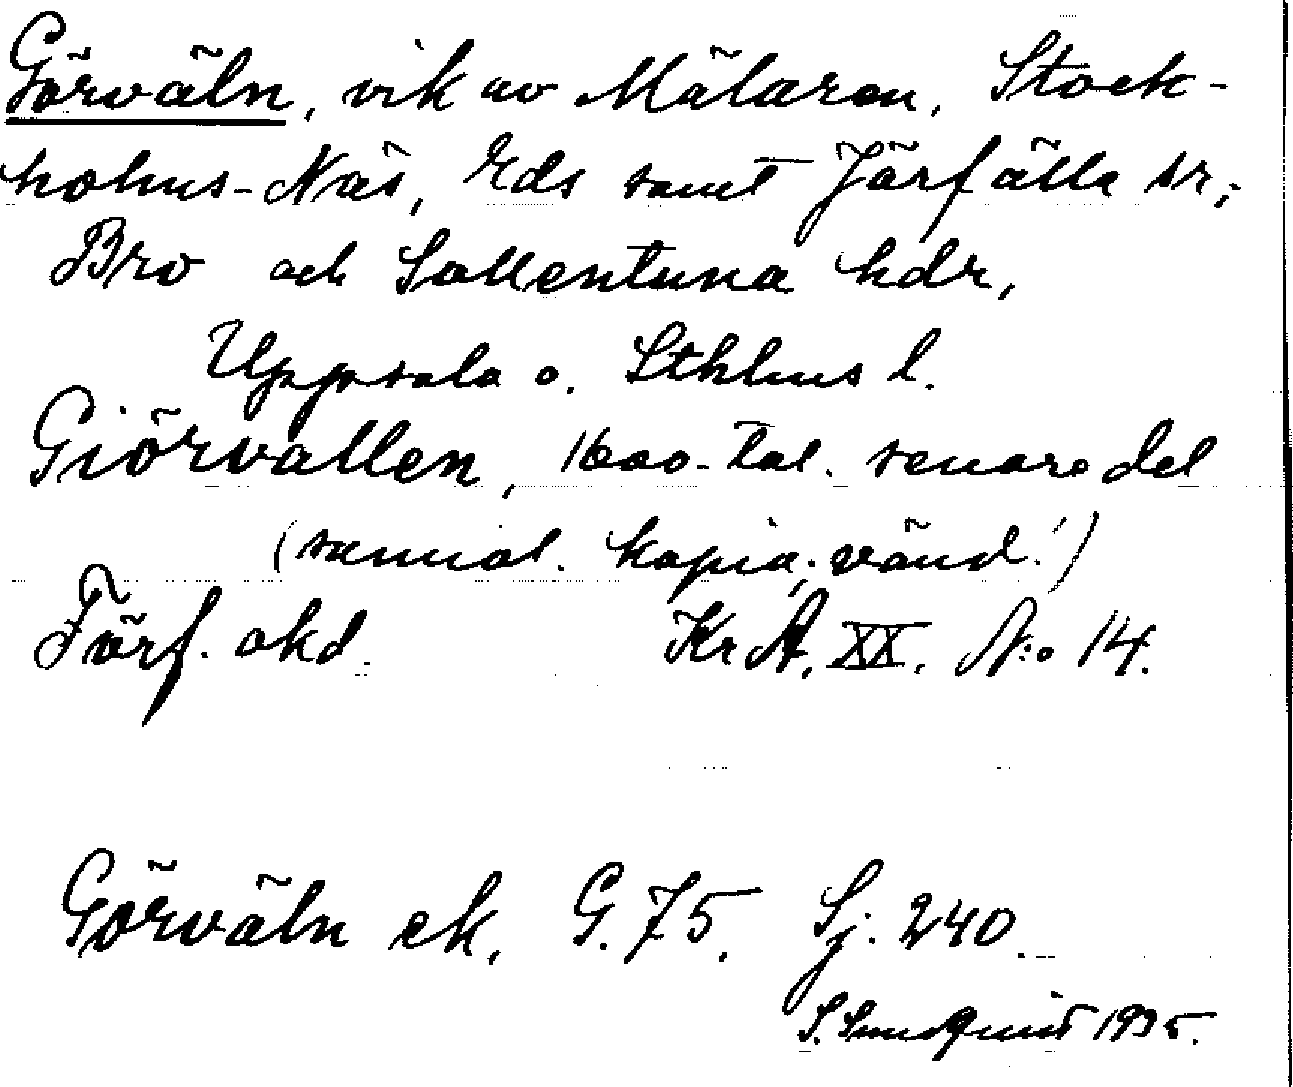 Görväln, vik av Mälaren, Stock-
holms-Näs, Eds samt Järfälla snr,
Bro och Sollentuna hdr,
Uppsala o. Sthlms l.
Giörvallen, 1600-tal. senare del
(samtid. kopia; vänd!)
Förf. okd. KrA. XX. N:o 14.
Görväln ek. G. 75. Sj. 240.
S. Sundquist 1935.